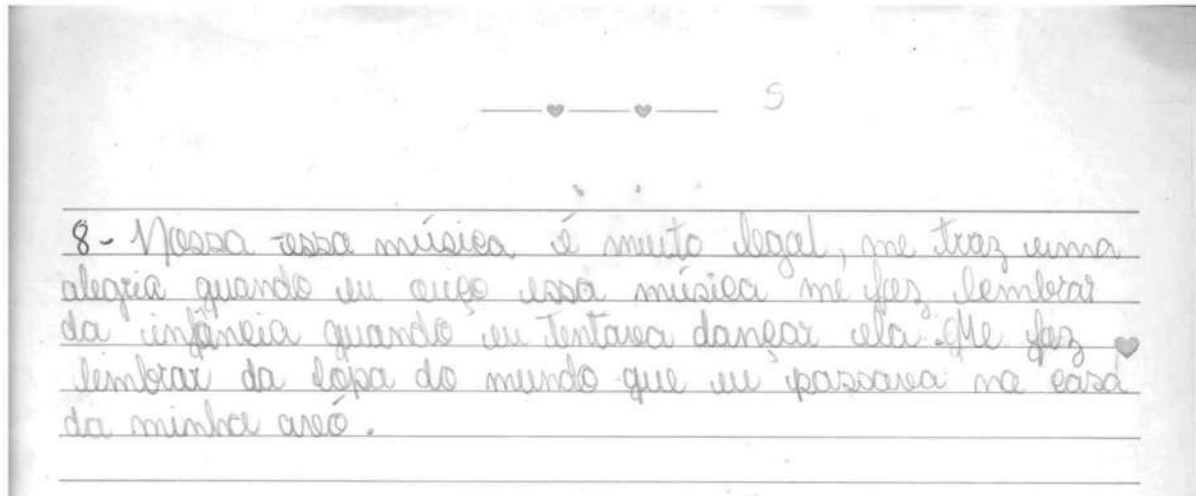 S
8- Nossa essa música é muito legal, me traz uma
alegria quando eu ouço essa música me faz lembrar
da infância quando eu tentava dançar ela. Me faz
lembrar da copa do mundo que eu passava na casa
da minha avó.